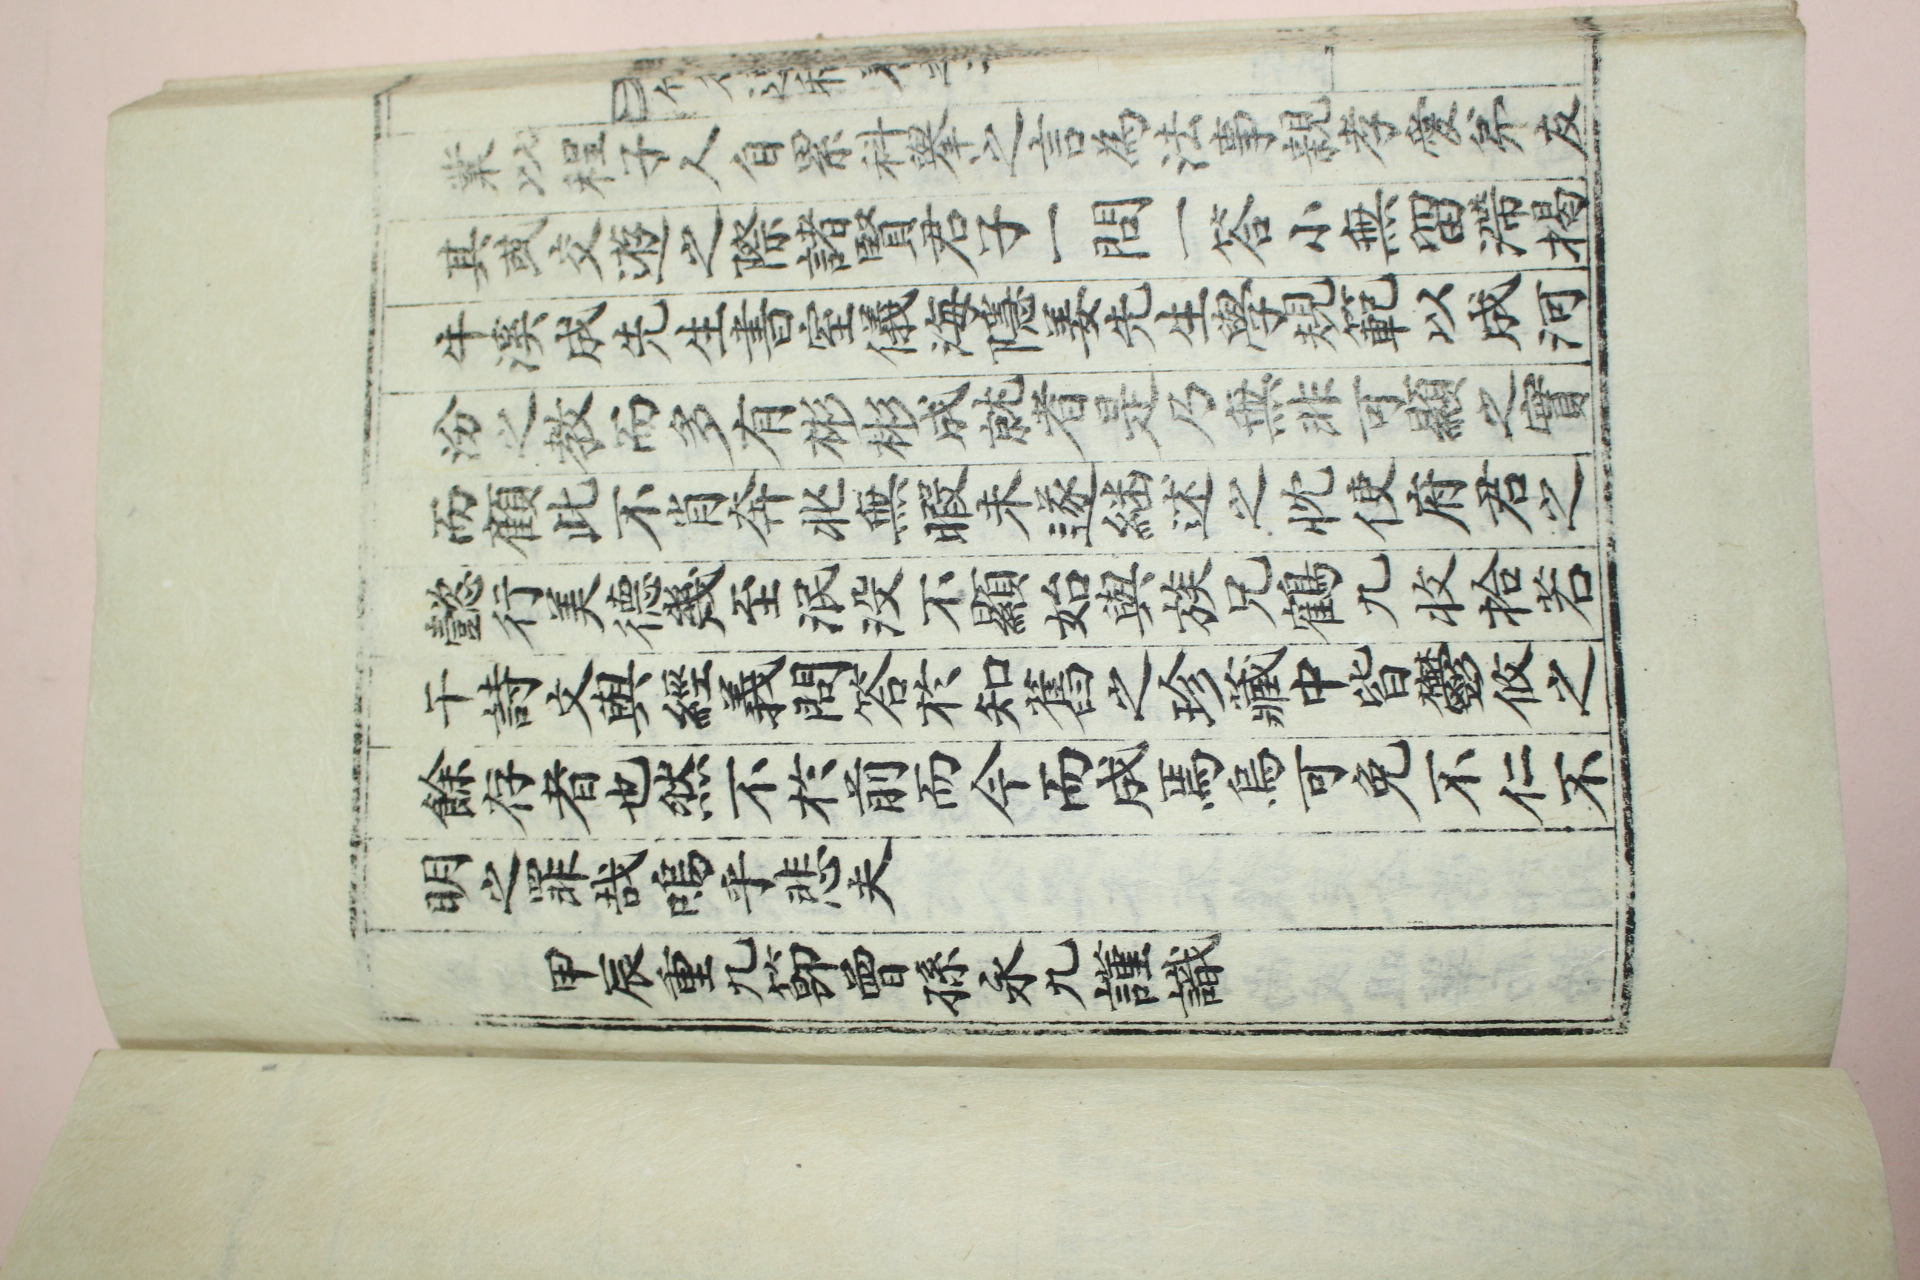 業以程子人自累科擧之言為法事親孝愛弟友
其或交遊之際諸賢君子一問一答小無留滯揭
牛溪成先生書室儀海隱姜先生學規範以成河
汾之教而多有彬彬成就者是乃無非可顯之實
而顧此不肖奔北無暇未遂継述之忱使府君之
懿行美德幾至泯沒不顯始與族兄鶴九收拾若
干詩文與經義問答於知舊之珍藏中皆鬱攸之
餘存者也然不於前而今而成焉烏可免不仁不
明之罪哉嗚乎悲夫
甲辰重九節曾孫永九謹識